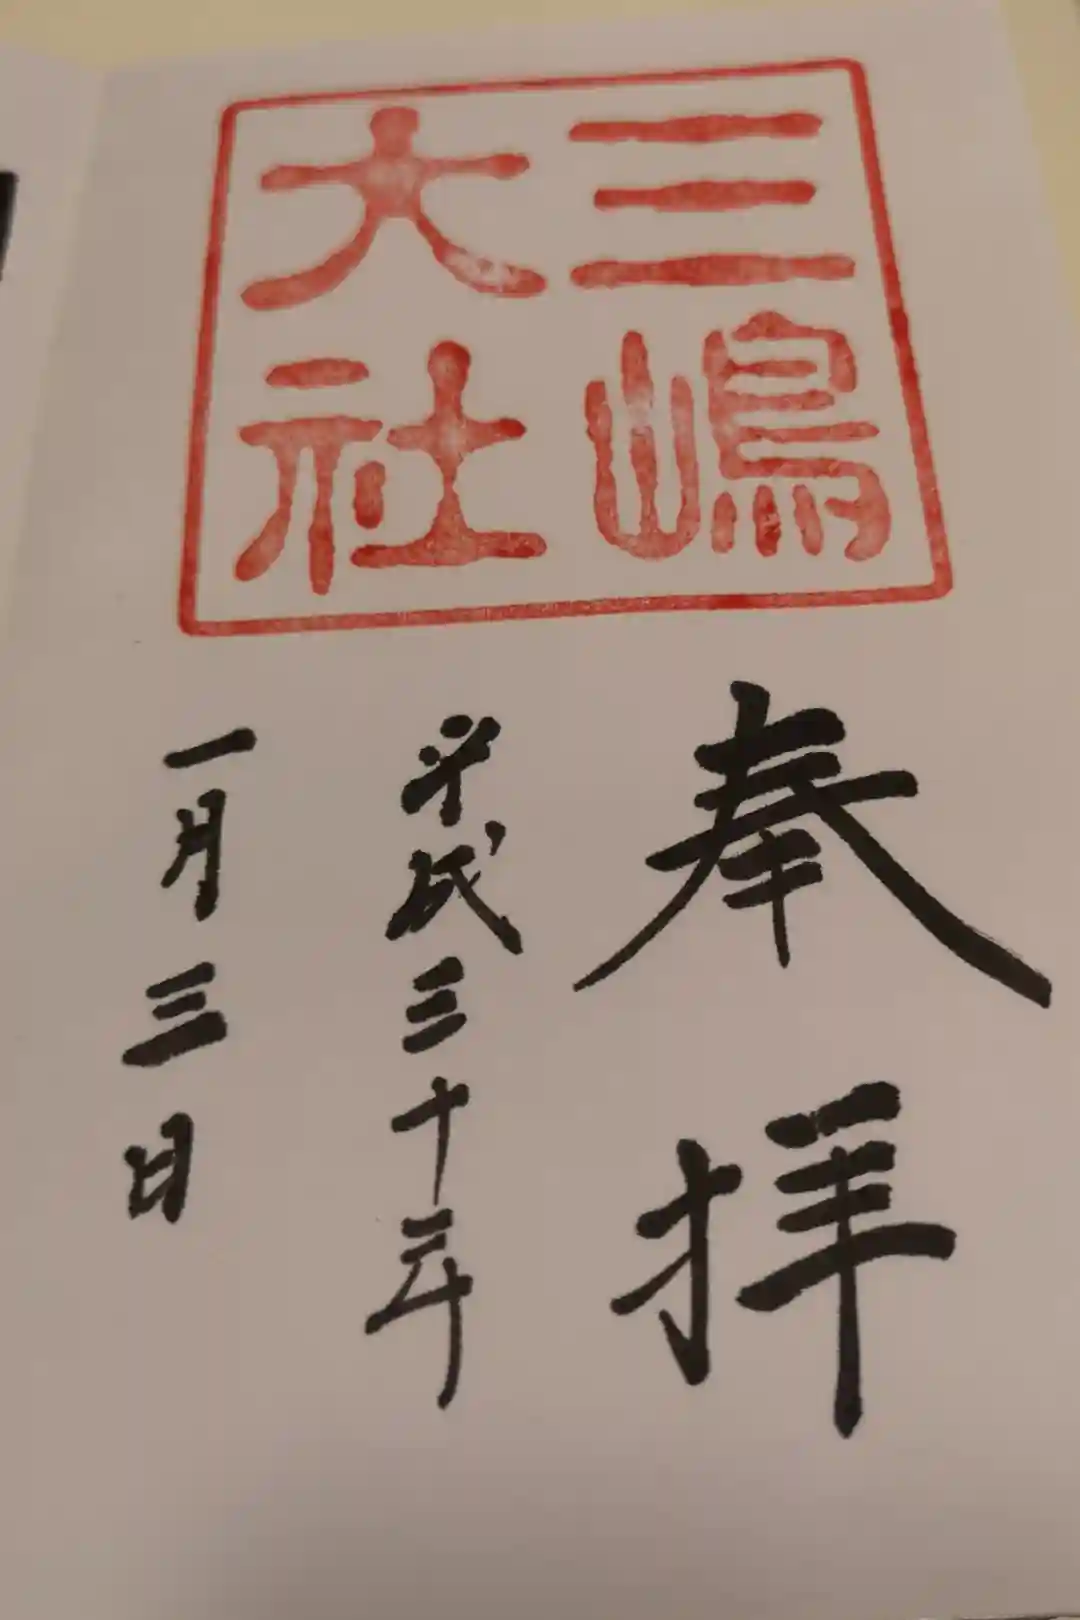 三嶋
大社
奉拝
平成三十年
一月三日